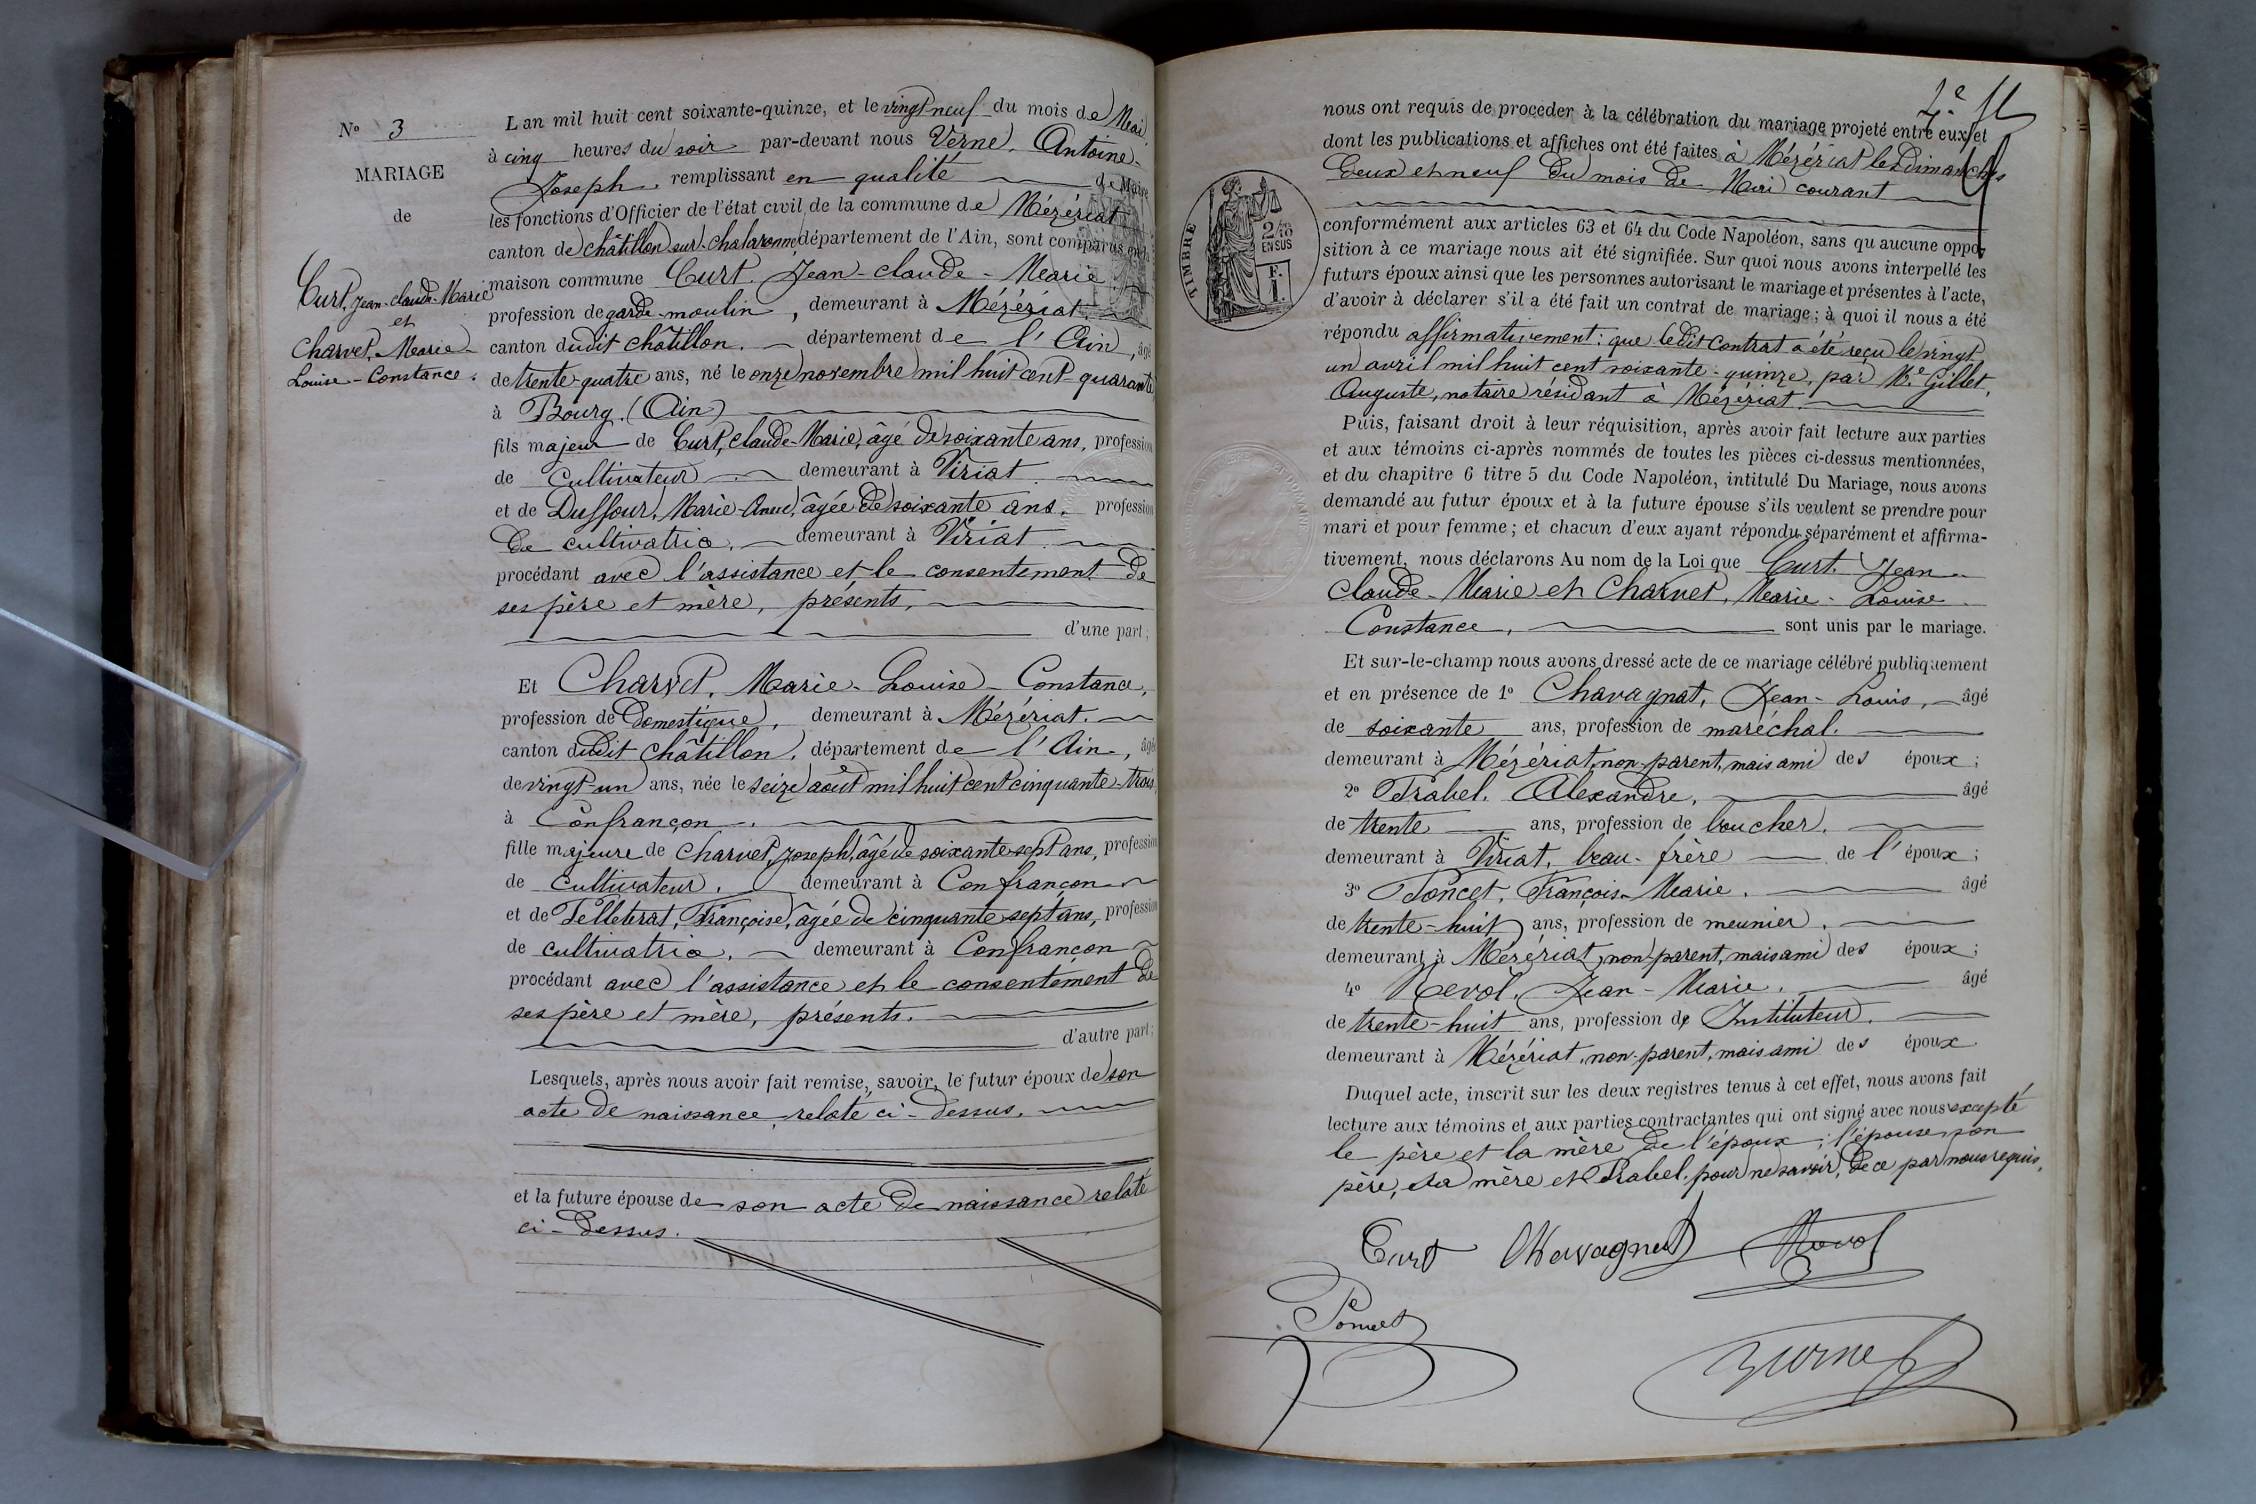 N° 3
MARIAGE
de
Curt, Jean-claude-Marie
et
Charvet, Marie-
Louise-Constance.
L'an mil huit cent soixante-quinze, et le vingt neuf du mois de Mai
à cinq heures du soir par-devant nous Verne, Antoine-
Joseph, remplissant en qualité de Maire
les fonctions d'Officier de l'état civil de la commune de Mézériat
canton de châtillon sur chalaronne département de l'Ain, sont comparus en la
maison commune Curt, Jean-claude-Marie
profession de garde-moulin, demeurant à Mézériat.
canton dudit châtillon. département de l'Ain, âgé
de trente-quatre ans, né le onze novembre mil huit cent quarante
à Bourg. (Ain)
fils majeur de Curt, claude-Marie, âgé de soixante ans, profession
de cultivateur demeurant à Viriat.
et de Duffour, Marie-Anne, âgée de soixante ans, profession
de cultivatrice. demeurant à Viriat
procédant avec l'assistance et le consentement de
ses père et mère, présents,
d'une part,
Et Charvet, Marie-Louise-Constance,
profession de Domestique, demeurant à Mézériat.
canton dudit châtillon, département de l'Ain, âgée
de vingt-un ans, née le seize août mil huit cent cinquante-trois
à Confrançon.
fille majeure de Charvet, Joseph, âgé de soixante sept ans, profession
de cultivateur. demeurant à Confrançon
et de Pelleterat, Françoise, âgée de cinquante sept ans, profession
de cultivatrice. demeurant à Confrançon
procédant avec l'assistance et le consentement de
ses père et mère, présents.
d'autre part;
Lesquels, après nous avoir fait remise, savoir, le futur époux de son
acte de naissance, relaté ci-dessus.
et la future épouse de son acte de naissance relaté
ci-dessus.
2e
nous ont requis de procéder à la célébration du mariage projeté entre eux, et
dont les publications et affiches ont été faites à Mézériat les Dimanches
deux et neuf du mois de Mai courant
TIMBRE
2/10
EN SUS
F.
1.
conformément aux articles 63 et 64 du Code Napoléon, sans qu'aucune oppo-
sition à ce mariage nous ait été signifiée. Sur quoi nous avons interpellé les
futurs époux ainsi que les personnes autorisant le mariage et présentes à l'acte,
d'avoir à déclarer s'il a été fait un contrat de mariage; à quoi il nous a été
répondu affirmativement: que ledit contrat a été reçu le vingt
un avril mil huit cent soixante-quinze, par Me Gillet,
Auguste, notaire résidant à Mézériat.
Puis, faisant droit à leur réquisition, après avoir fait lecture aux parties
et aux témoins ci-après nommés de toutes les pièces ci-dessus mentionnées,
et du chapitre 6 titre 5 du Code Napoléon, intitulé Du Mariage, nous avons
demandé au futur époux et à la future épouse s'ils veulent se prendre pour
mari et pour femme; et chacun d'eux ayant répondu séparément et affirma-
tivement, nous déclarons Au nom de la Loi que Curt, Jean-
Claude-Marie et Charvet, Marie-Louise
Constance, sont unis par le mariage.
Et sur-le-champ nous avons dressé acte de ce mariage célébré publiquement
et en présence de 1° Chavagnat, Jean-Louis, âgé
de soixante ans, profession de maréchal.
demeurant à Mézériat, non-parent, mais ami des époux;
2° Trabel, Alexandre, âgé
de trente ans, profession de boucher.
demeurant à Viriat, beau-frère de l'époux;
3° Poncet, François-Marie. âgé
de trente-huit ans, profession de meunier.
demeurant à Mézériat, non-parent, mais ami des époux;
4° Revol, Jean-Marie. âgé
de trente-huit ans, profession de Instituteur.
demeurant à Mézériat, non-parent, mais ami des époux
Duquel acte, inscrit sur les deux registres tenus à cet effet, nous avons fait
lecture aux témoins et aux parties contractantes qui ont signé avec nous excepté
le père et la mère de l'époux; l'épouse, son
père, sa mère et Trabel, pour ne savoir, de ce par nous requis.
Curt Chavagnat Revol
Poncet
Verne